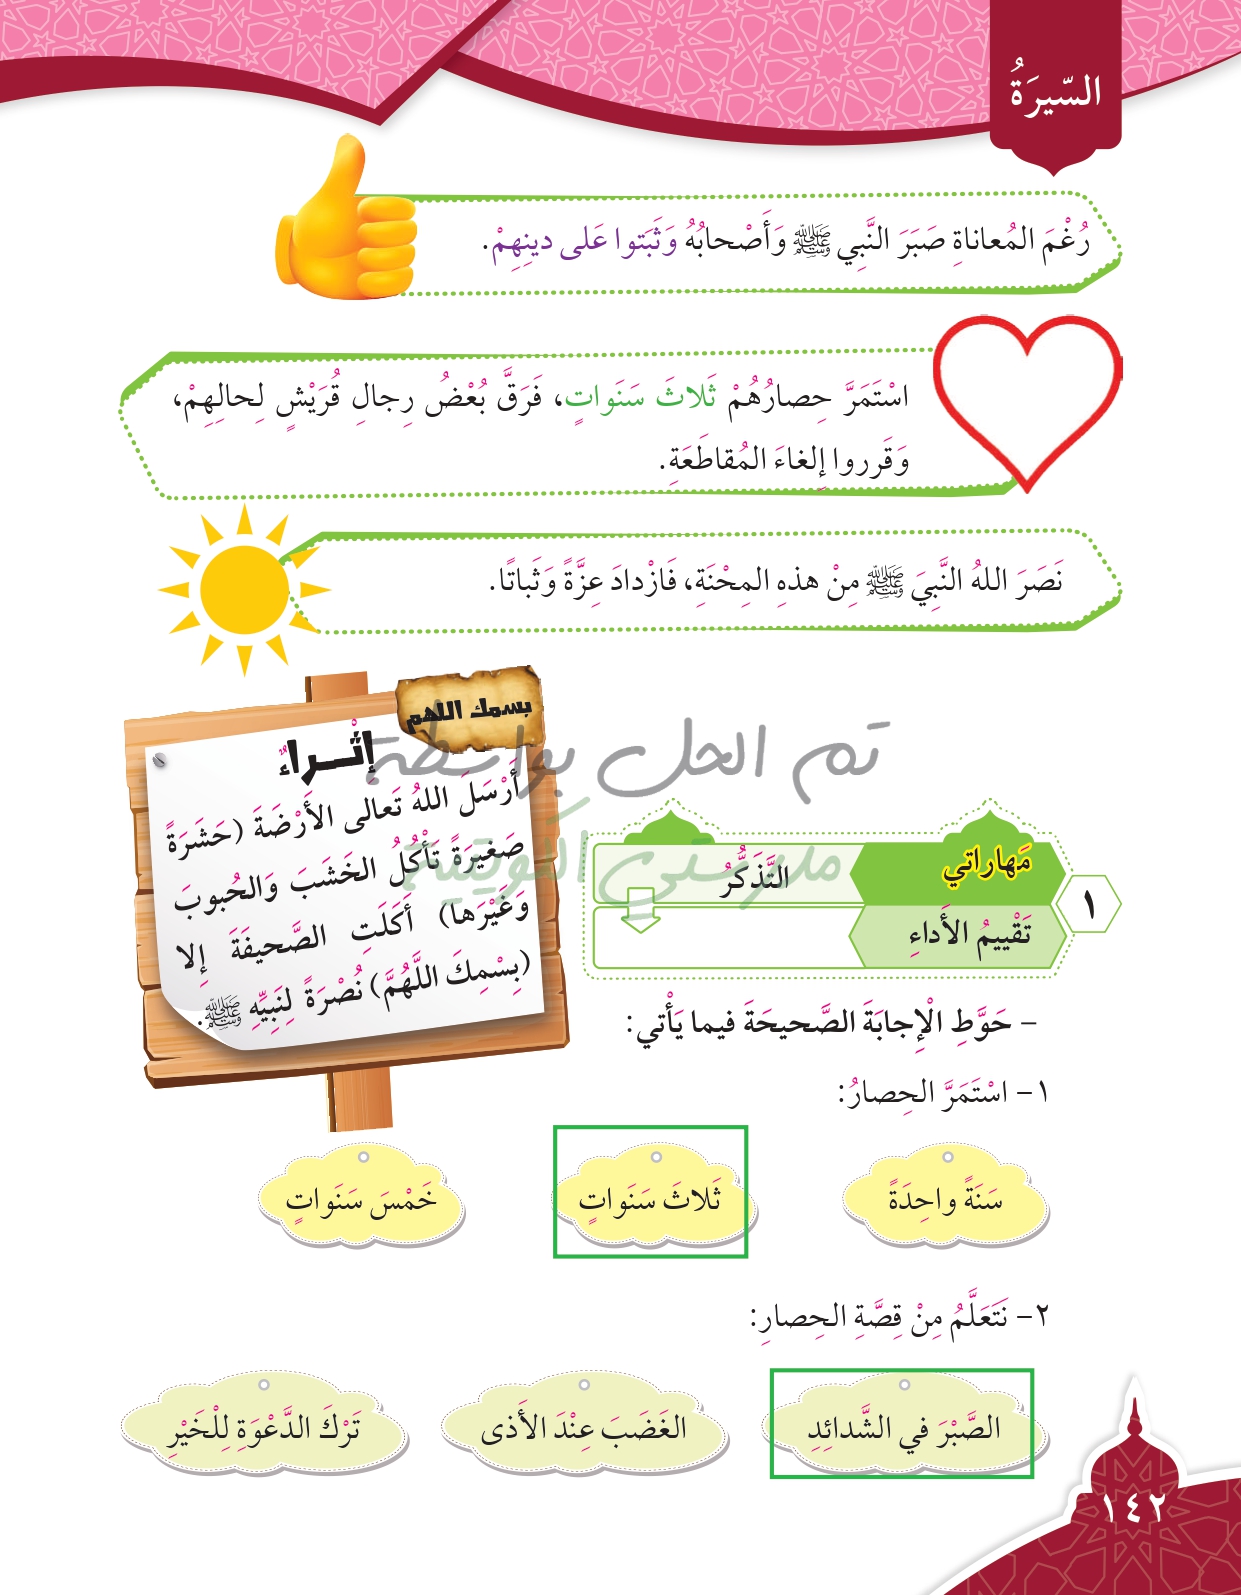 السِّيرَةُ
رُغْمَ المُعاناةِ صَبَرَ النَّبِي ﷺ وَأَصْحابُهُ وَثَبَتوا عَلى دينِهِمْ.
اسْتَمَرَّ حِصارُهُمْ ثَلاثَ سَنَواتٍ، فَرَقَّ بُعْضُ رِجالِ قُرَيْشٍ لِحالِهِمْ،
وَقَرروا إِلغاءَ المُقاطَعَةِ.
نَصَرَ اللهُ النَّبِيَ ﷺ مِنْ هذهِ المِحْنَةِ، فَازْدادَ عِزَّةً وَثَباتًا.
بسمك اللهم
إثْــراءٌ
أَرْسَلَ اللهُ تَعالى الأَرْضَةَ (حَشَرَةً
صَغيرَةً تَأْكُلُ الخَشَبَ وَالحُبوبَ
وَغَيْرَها) أَكَلَتِ الصَّحيفَةَ إِلا
(بِسْمِكَ اللَّهُمَّ) نُصْرَةً لِنَبِيِّهِ ﷺ.
تم الحل بواسطة
مدرستي الكويتية
١
مَهاراتي
التَّذَكُّرُ
تَقْييمُ الأَداءِ
– حَوَّطِ الْإِجابَةَ الصَّحيحَةَ فيما يَأْتي:
١– اسْتَمَرَّ الحِصارُ:
سَنَةً واحِدَةً
ثَلاثَ سَنَواتٍ
خَمْسَ سَنَواتٍ
٢– نَتَعَلَّمُ مِنْ قِصَّةِ الحِصارِ:
الصَّبْرَ في الشَّدائِدِ
الغَضَبَ عِنْدَ الأَذى
تَرْكَ الدَّعْوَةِ لِلْخَيْرِ
١٤٢